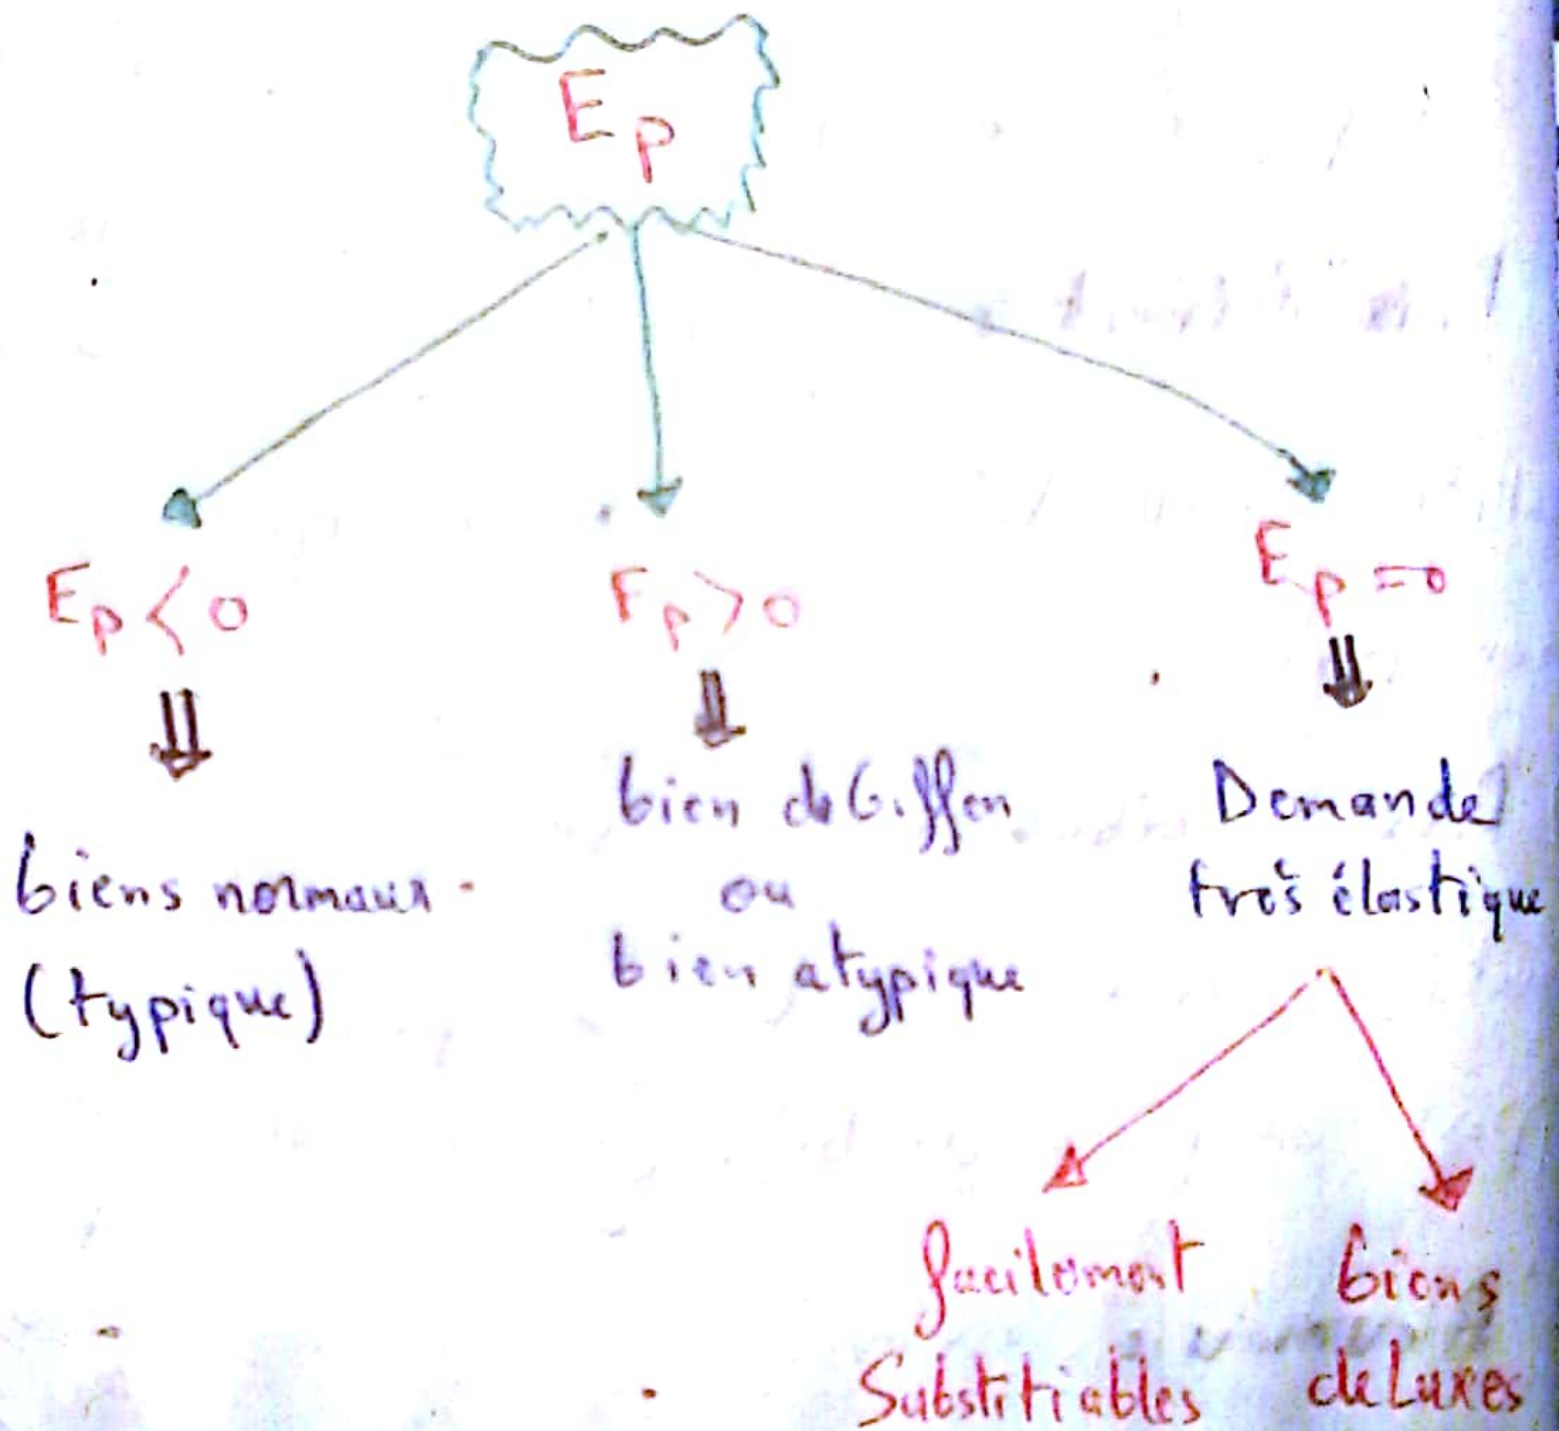 Ep
Ep < 0
Ep > 0
Ep = 0
biens normaux
(typique)
bien de Giffen
ou
bien atypique
Demande
très élastique
facilement
Substitiables
biens
de Luxes